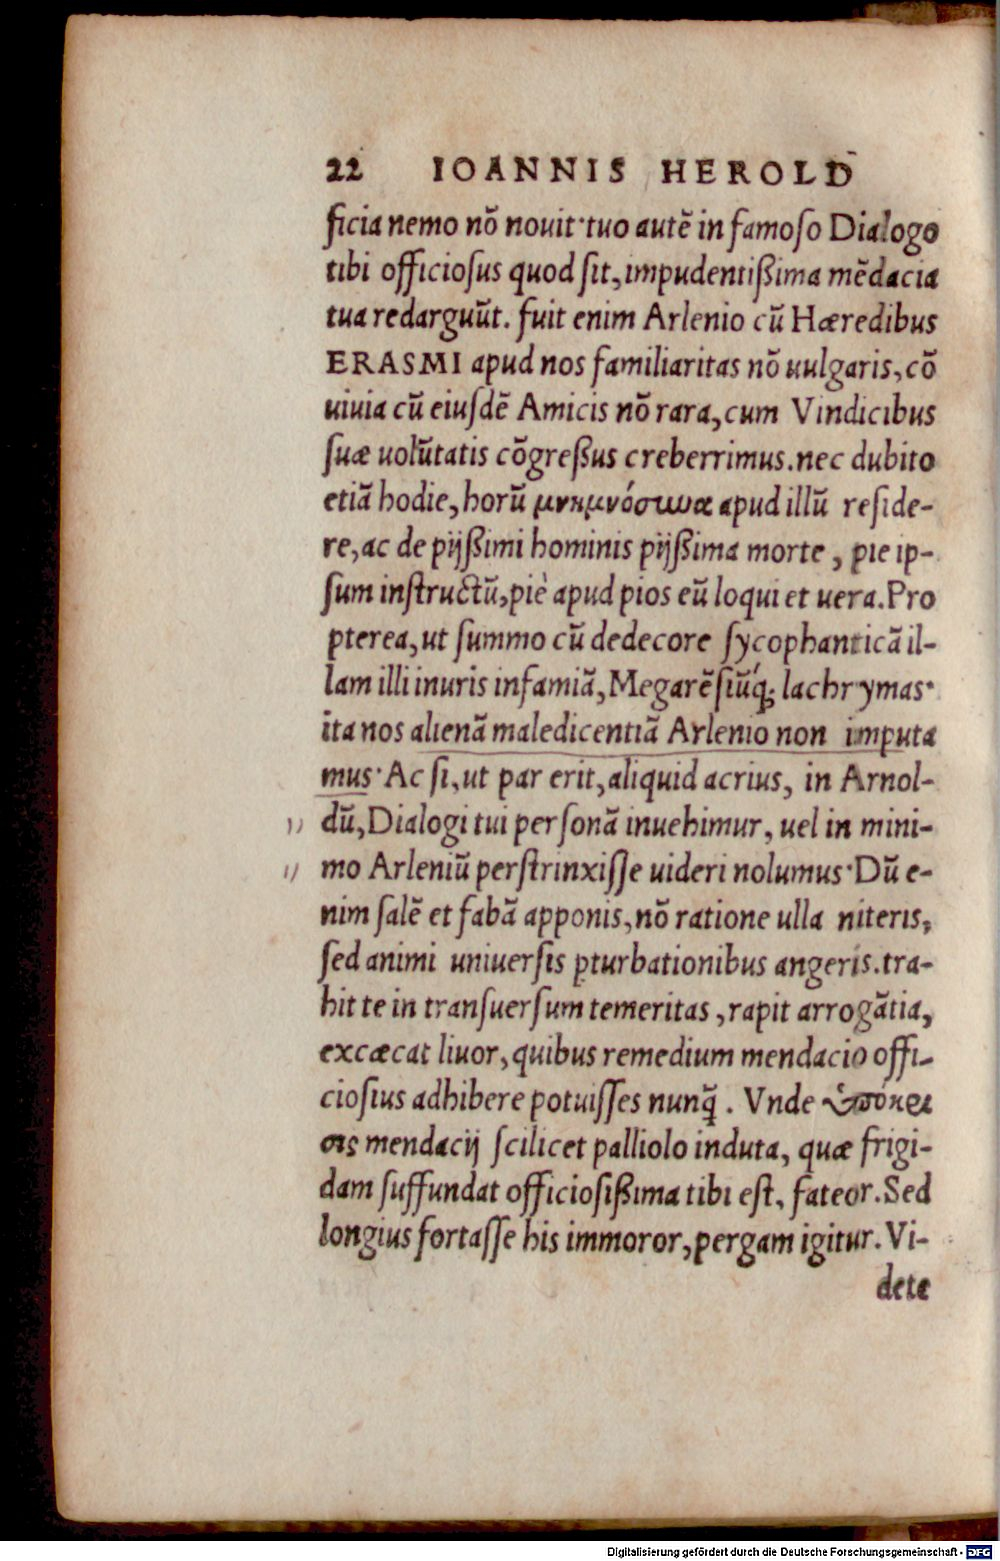 22 IOANNIS HEROLD
ficia nemo nõ nouit·tuo autẽ in famoſo Dialogo
tibi officioſus quod ſit, impudentißima mẽdacia
tua redarguũt. fuit enim Arlenio cũ Hæredibus
ERASMI apud nos familiaritas nõ uulgaris, cõ
uiuia cũ eiuſdẽ Amicis nõ rara, cum Vindicibus
ſuæ uolũtatis cõgreßus creberrimus. nec dubito
etiã hodie, horũ μνημνόσυνα apud illũ reſide-
re, ac de pijßimi hominis pijßima morte, pie ip-
ſum inſtructũ, piè apud pios eũ loqui et uera. Pro
pterea, ut ſummo cũ dedecore ſycophanticã il-
lam illi inuris infamiã, Megarẽſiũq́; lachrymas·
ita nos alienã maledicentiã Arlenio non imputa
mus· Ac ſi, ut par erit, aliquid acrius, in Arnol-
dũ, Dialogi tui perſonã inuehimur, uel in mini-
mo Arleniũ perſtrinxiſſe uideri nolumus· Dũ e-
nim ſalẽ et fabã apponis, nõ ratione ulla niteris,
ſed animi uniuerſis ꝑturbationibus angeris. tra-
hit te in tranſuerſum temeritas, rapit arrogãtia,
excæcat liuor, quibus remedium mendacio offi-
cioſius adhibere potuiſſes nunq̃. Vnde ὑπόκρι
σις mendacij ſcilicet palliolo induta, quæ frigi-
dam ſuffundat officioſißima tibi eſt, fateor. Sed
longius fortaſſe his immoror, pergam igitur. Vi-
dete
Digitalisierung gefördert durch die Deutsche Forschungsgemeinschaft - DFG